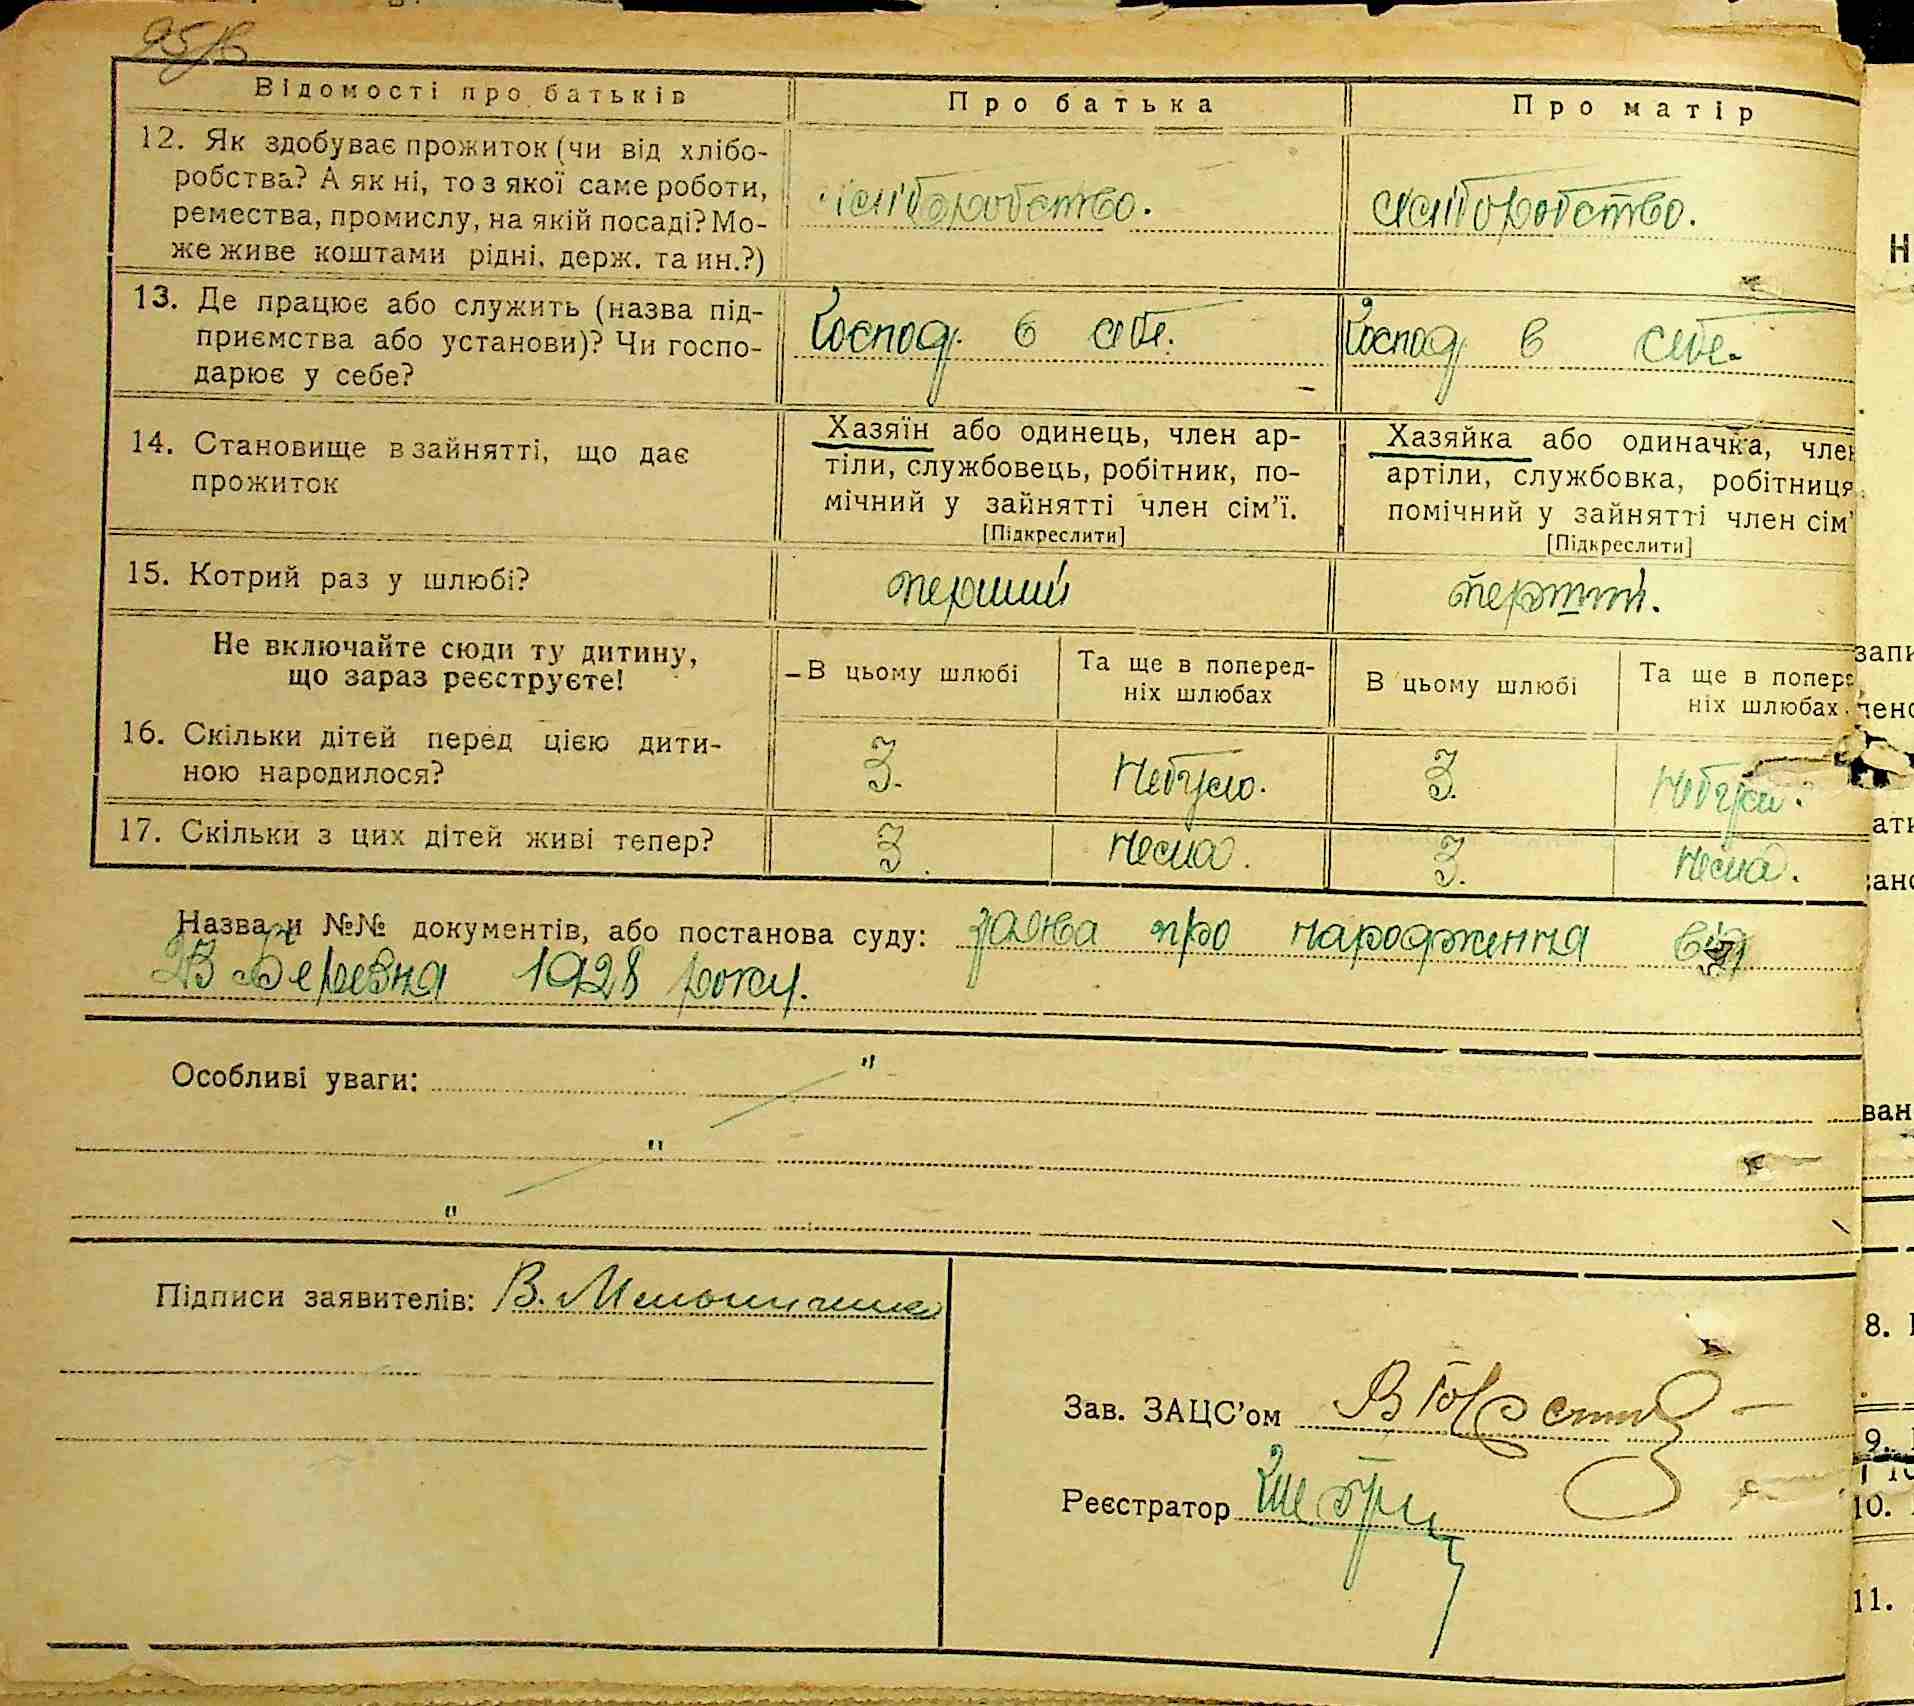 Відомості про батьків
Про батька
Про матір
12. Як здобуває прожиток (чи від хлібо-
робства? А як ні, то з якої саме роботи,
ремества, промислу, на якій посаді? Мо-
же живе коштами рідні, держ. та ин.?)
хліборобство.
хліборобство.
13. Де працює або служить (назва під-
приємства або установи)? Чи госпо-
дарює у себе?
Господ. в себе.
Господ. в себе.
14. Становище в зайнятті, що дає
прожиток
Хазяїн або одинець, член ар-
тіли, службовець, робітник, по-
мічний у зайнятті член сім'ї.
[Підкреслити]
Хазяйка або одиначка, член
артіли, службовка, робітниця
помічний у зайнятті член сім'
[Підкреслити]
15. Котрий раз у шлюбі?
перший
перший.
Не включайте сюди ту дитину,
що зараз реєструєте!
В цьому шлюбі
Та ще в поперед-
ніх шлюбах
В цьому шлюбі
Та ще в попере
ніх шлюбах
16. Скільки дітей перед цією дити-
ною народилося?
3.
Небуло.
3.
Небуло.
17. Скільки з цих дітей живі тепер?
3.
Нема.
3.
Нема.
Назва и №№ документів, або постанова суду: заява про народження від
23 березня 1928 року.
Особливі уваги: "
"
"
Підписи заявителів: В. Мельниченко
Зав. ЗАЦС'ом
Реєстратор
8.
9.
10.
11.